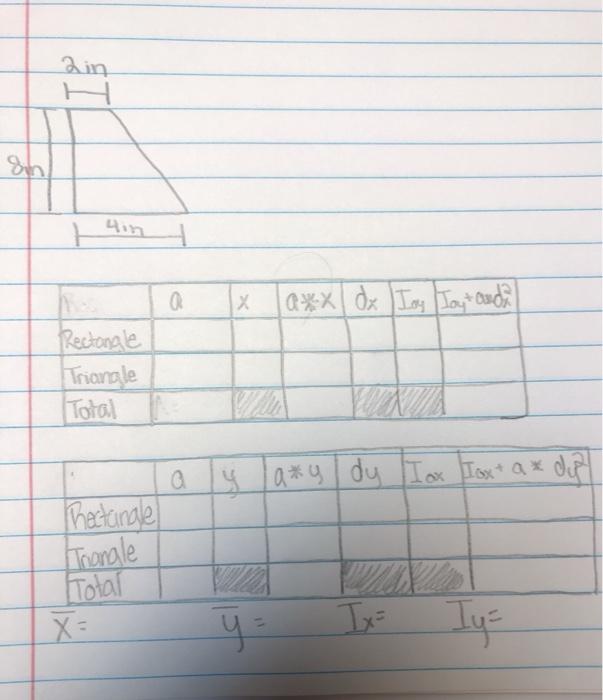 2in
8in
4in
a x a*x dx Ioy Ioy+a*dx²
Rectangle
Triangle
Total
a y a*y dy Iox Iox+a* dy²
Rectangle
Triangle
Total
x̄= ȳ= Ix= Iy=